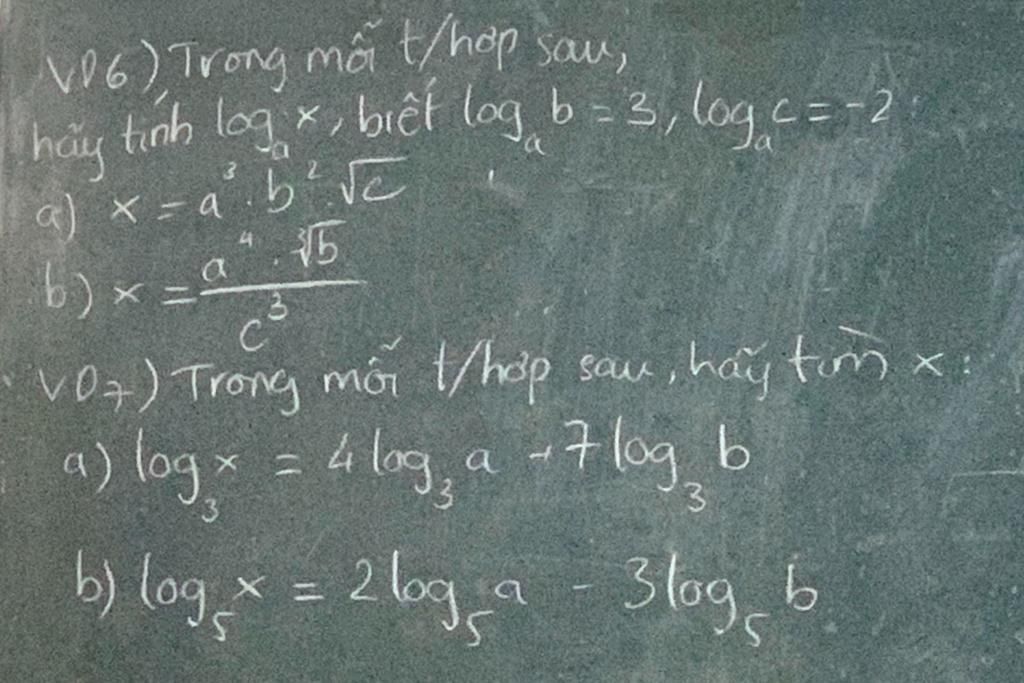 VD6) Trong mỗi t/hợp sau,
hãy tính logₐ x, biết logₐ b = 3, logₐ c = -2:
a) x = a³ · b² · √c
b) x = (a⁴ · ∛b) / c³
VD7) Trong mỗi t/hợp sau, hãy tìm x:
a) log₃ x = 4 log₃ a + 7 log₃ b
b) log₅ x = 2 log₅ a - 3 log₅ b